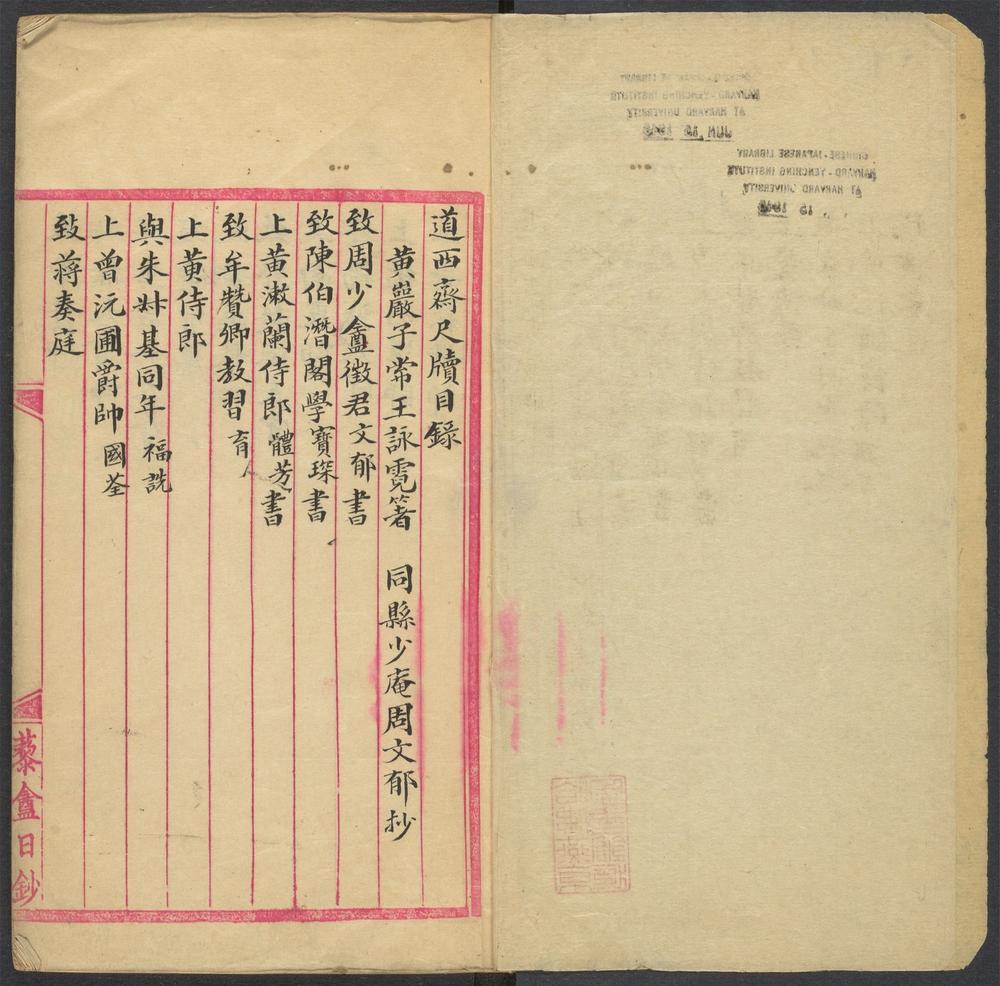 道西齋尺牘目錄
黃巖子常王詠霓著　同縣少庵周文郁抄
致周少盦徵君文郁書
致陳伯潛閣學寶琛書
上黃漱蘭侍郎體芳書
致牟贊卿教習育
上黃侍郎
與朱姅基同年福詵
上曾沅圃爵帥國荃
致蔣奏庭
藜盦日鈔
CHINESE-JAPANESE LIBRARY
HARVARD-YENCHING INSTITUTE
AT HARVARD UNIVERSITY
JUN 15
CHINESE-JAPANESE LIBRARY
HARVARD-YENCHING INSTITUTE
AT HARVARD UNIVERSITY
15